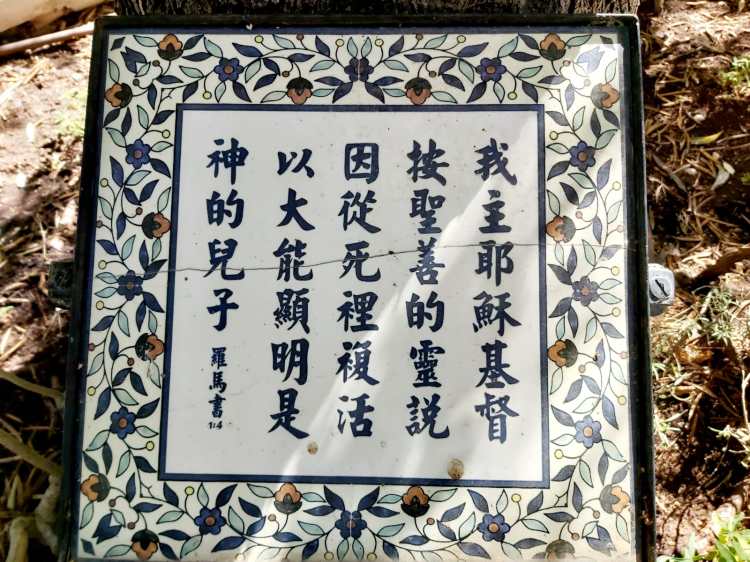 我主耶穌基督
按聖善的靈説
因從死裡複活
以大能顯明是
神的兒子 羅馬書 1:4